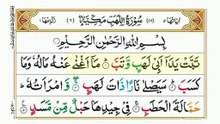 سُوْرَةُ اللَّهَبِ مَكِّيَّةٌ
بِسْمِ اللهِ الرَّحْمٰنِ الرَّحِيْمِ
تَبَّتْ يَدَآ اَبِيْ لَهَبٍ وَّتَبَّ ۞ مَآ اَغْنٰى عَنْهُ مَالُهٗ وَمَا
كَسَبَ ۞ سَيَصْلٰى نَارًا ذَاتَ لَهَبٍ ۞ وَّامْرَاَتُهٗ ؕ
حَمَّالَةَ الْحَطَبِ ۞ فِيْ جِيْدِهَا حَبْلٌ مِّنْ مَّسَدٍ ۞